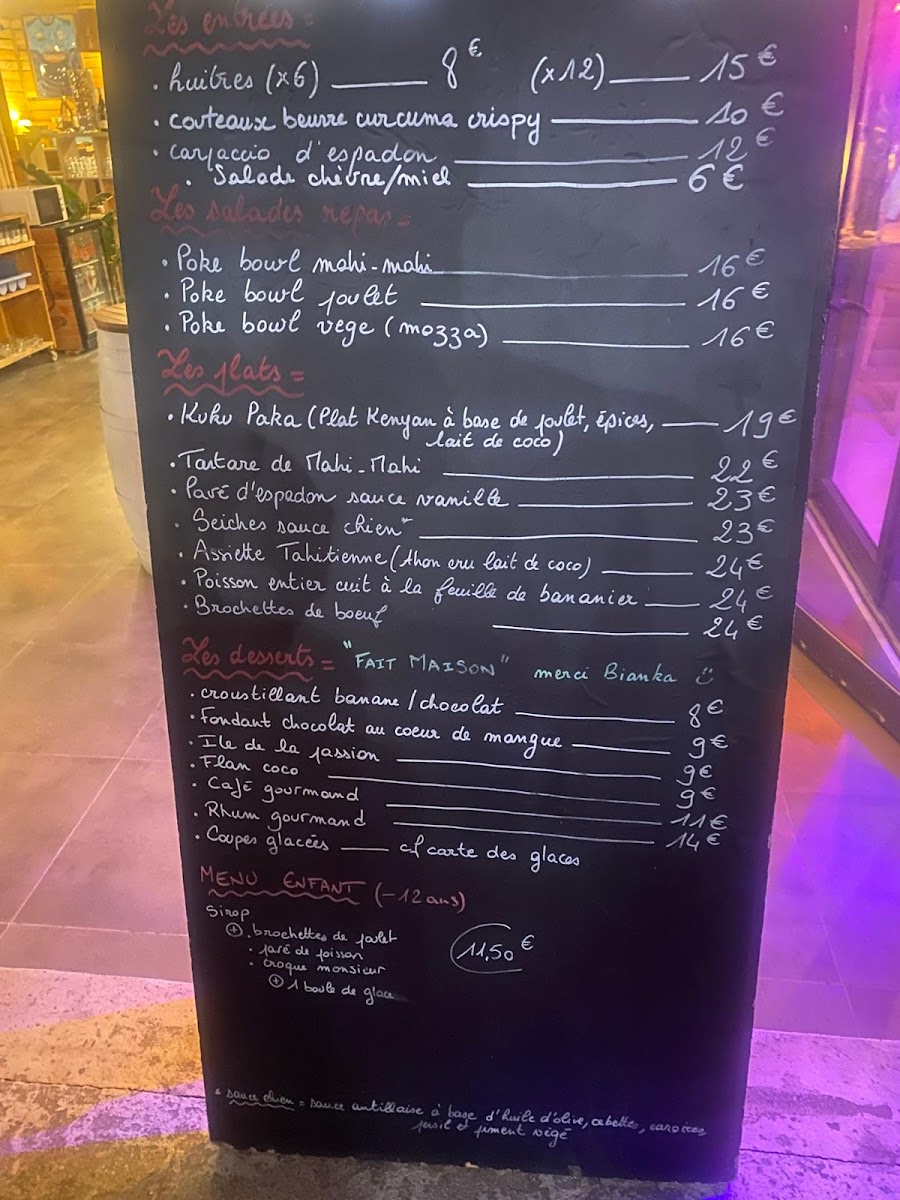 Les entrées =
. huitres (x6) 8€ (x12) 15€
. couteaux beurre curcuma crispy 10€
. carpaccio d'espadon 12€
. Salade chèvre/miel 6€
Les salades repas =
. Poke bowl mahi-mahi 16€
. Poke bowl poulet 16€
. Poke bowl vege (mozza) 16€
Les plats =
. Kuku Paka (Plat Kenyan à base de poulet, épices, 19€
lait de coco)
. Tartare de Mahi-Mahi 22€
. Pavé d'espadon sauce vanille 23€
. Seiches sauce chien* 23€
. Assiette Tahitienne (thon cru lait de coco) 24€
. Poisson entier cuit à la feuille de bananier 24€
. Brochettes de boeuf 24€
Les desserts = "FAIT MAISON" merci Bianka
. croustillant banane/chocolat 8€
. Fondant chocolat au coeur de mangue 9€
. Ile de la passion 9€
. Flan coco 9€
. Café gourmand 11€
. Rhum gourmand 14€
. Coupes glacées cf carte des glaces
MENU ENFANT (-12 ans)
Sirop
+ . brochettes de poulet 11,50€
. pavé de poisson
. croque monsieur
+ 1 boule de glace
* sauce chien = sauce antillaise à base d'huile d'olive, cebettes, carottes,
persil et piment végé